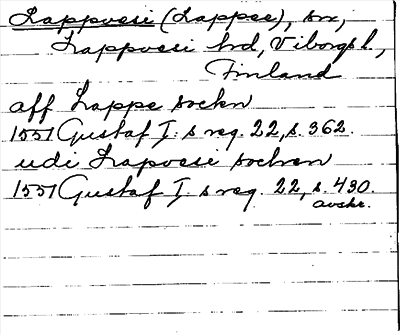 Lappvesi (Lappee), sn,
Lappvesi hrd, Viborgs l.,
Finland
aff Lappe sockn
1551 Gustaf I:s reg. 22, s. 362.
udi Lapvesi sochnn
1551 Gustaf I:s reg. 22, s. 430.
avskr.